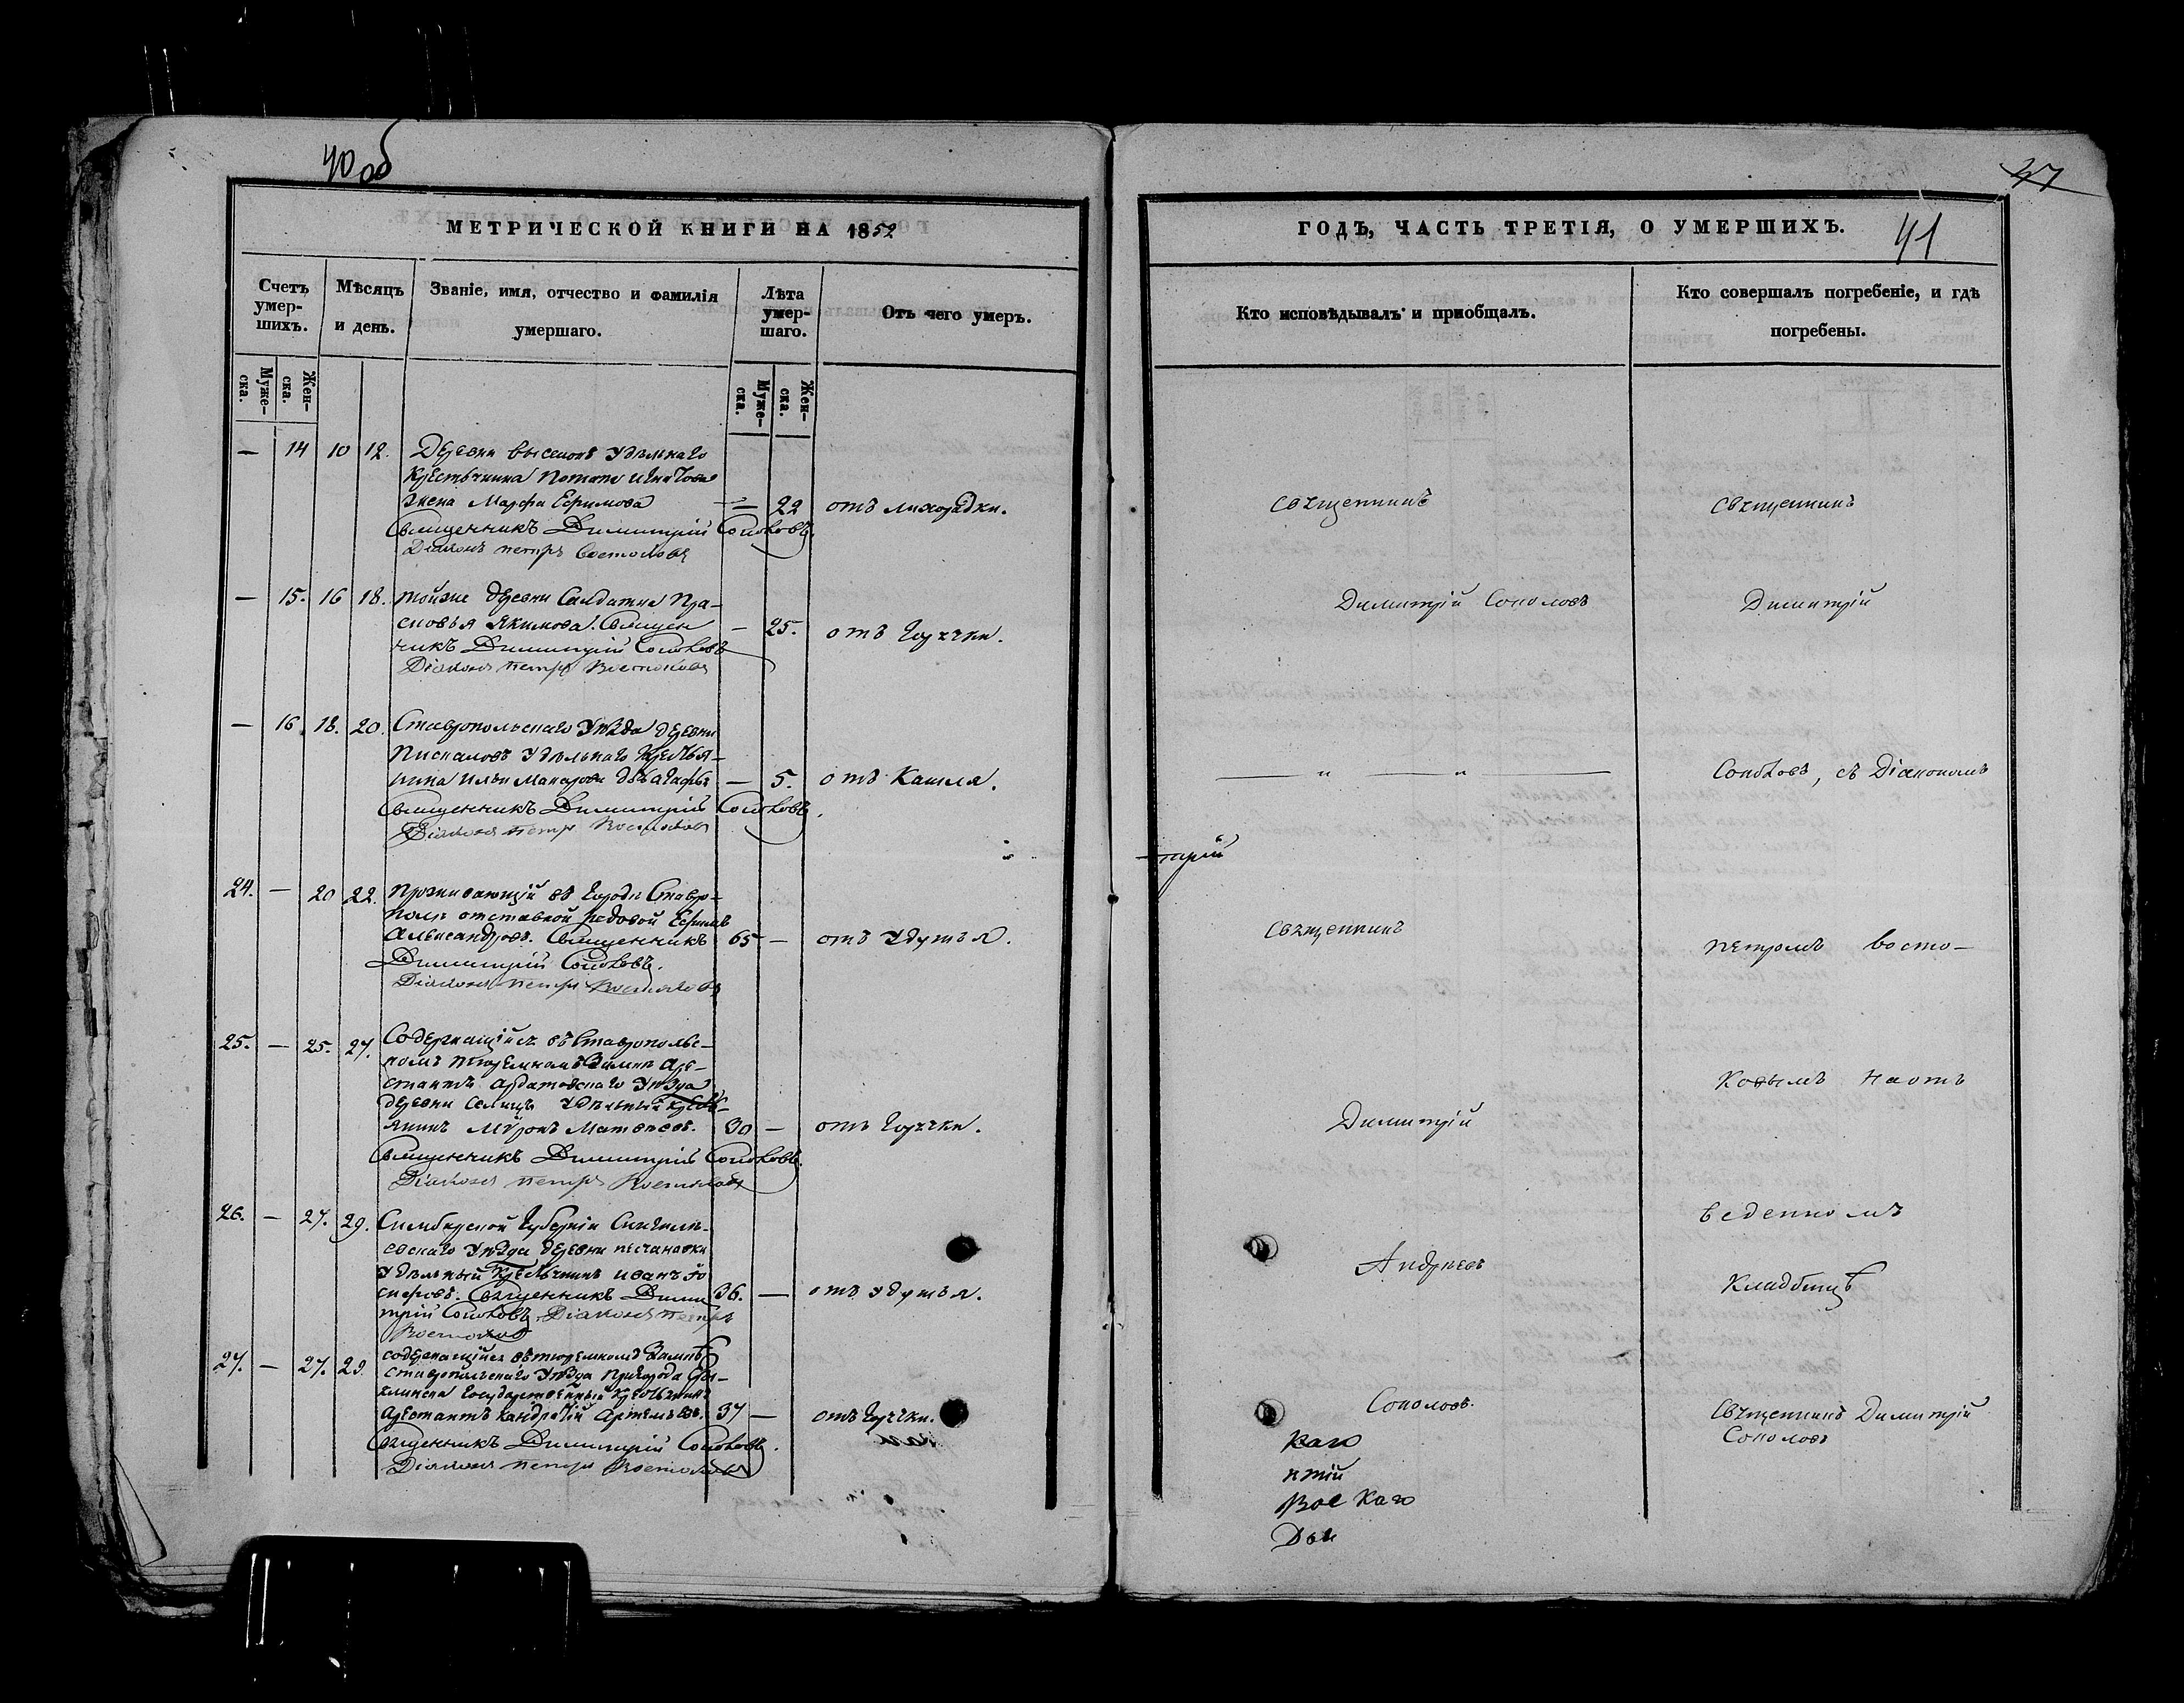 40 об
МЕТРИЧЕСКОЙ КНИГИ НА 1852
Счетъ умер-шихъ.
Мѣсяцъ и день.
Званіе, имя, отчество и фамилія умершаго.
Лѣта умер-шаго.
Отъ чего умеръ.
Муже-ска.
Жен-ска.
Муже-ска.
Жен-ска.
— 14 10 12. Деревни Выселокъ Удѣльнаго
Крестьянина Потапа Игнатова
жена Марфа Ефимова — 22 отъ лихорадки.
Священникъ Димитрій Соколовъ.
Діаконъ Петръ Востоковъ
— 15. 16 18. той же деревни Солдатка Пра-
сковья Якимова. Священ — 25. отъ горячки.
никъ Димитрій Соколовъ
Діаконъ Петръ Востоковъ
— 16. 18. 20. Ставропольскаго Уѣзда деревни
Пискаловъ Удѣльнаго Крестья-
нина Ильи Макарова дочь Агафья — 5. отъ Кашля.
Священникъ Димитрій Соколовъ.
Діаконъ Петръ Востоковъ
24. — 20 22. Проживающій въ городѣ Ставро-
полѣ отставной рядовой Ефимъ
Александровъ. Священникъ 65 — отъ Удушья.
Димитрій Соколовъ.
Діаконъ Петръ Востоковъ
25. — 25. 27. Содержащійся въ Ставрополь-
скомъ тюремномъ Замкѣ Аре-
стантъ Ардатовскаго Уѣзда
деревни Селищъ Удѣльный Кресть-
янинъ Миронъ Матвѣевъ. 30 — отъ горячки.
Священникъ Димитрій Соколовъ.
Діаконъ Петръ Востоковъ
26. — 27. 29. Симбирской Губерніи Сингиле-
евскаго Уѣзда деревни Песчановки
Удѣльный Крестьянинъ Иванъ
Священникъ Дими 36. — отъ Удушья.
трій Соколовъ. Діаконъ Петръ
Востоковъ
27. — 27. 29 содержащійся въ тюремномъ Замкѣ
Ставропольскаго Уѣзда Пригорода
Государственный Крестьянинъ
Арестантъ Кандратій Артемьевъ. 37 — отъ горячки.
Священникъ Димитрій Соколовъ.
Діаконъ Петръ Востоковъ
47
ГОДЪ, ЧАСТЬ ТРЕТІЯ, О УМЕРШИХЪ.
41
Кто исповѣдывалъ и пріобщалъ.
Кто совершалъ погребеніе, и гдѣ погребены.
Священникъ
Димитрій Соколовъ
— " — " —
трій
Священникъ
Димитрій
Андреевъ
Соколовъ.
каго
Вос каго
Священникъ
Димитрій
Соколовъ, съ Діакономъ
Петромъ Восто-
ковымъ на отъ
веденномъ
Кладбищѣ
Священникъ Димитрій
Соколовъ